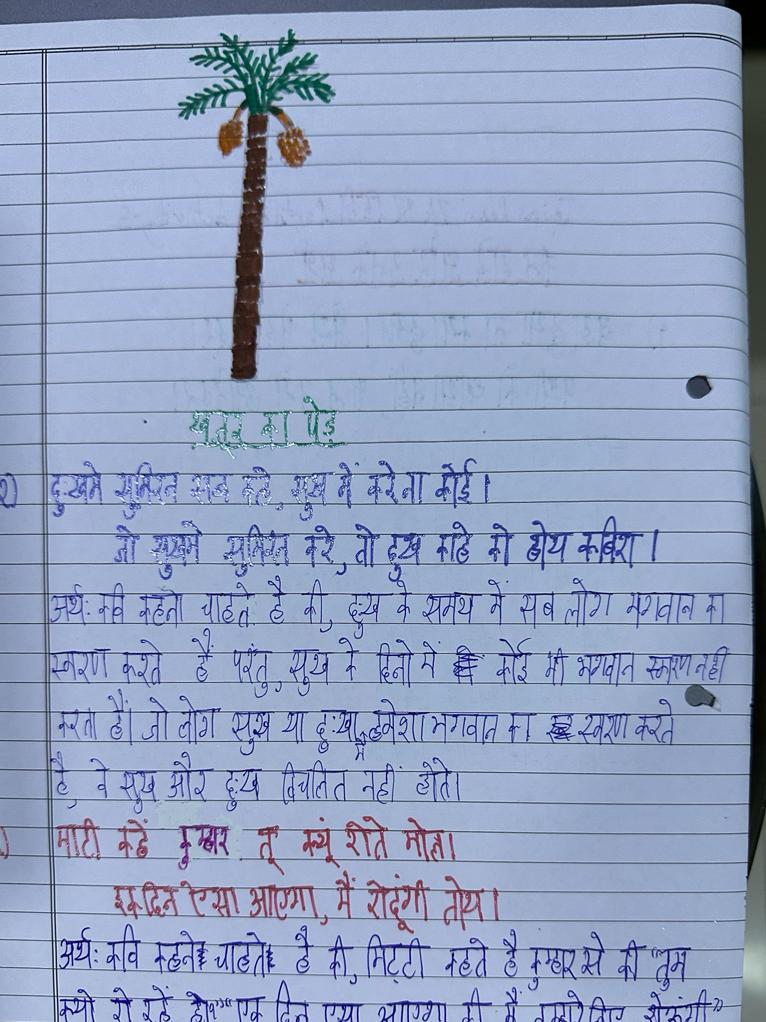 खजूर का पेड़
२) दुःखमे सुमिरन सब करे, सुख में करे ना कोई।
जो सुखमे सुमिरन करे, तो दुख काहे को होय कबिरा।
अर्थ: कवि कहना चाहते है की, दुःख के समय में सब लोग भगवान का
स्मरण करते हैं परंतु, सुख के दिनो में कोई भी भगवान स्मरण नही
करता हैं। जो लोग सुख या दुःखमें हमेशा भगवान का स्मरण करते
है, वे सुख और दुःख विचलित नहीं होते।
माटी कहें कुम्हार तू क्यूं रोते मोल।
इक दिन ऐसा आएगा, मैं रोदूंगी तोय।
अर्थ: कवि कहने चाहते है की, मिट्टी कहते है कुम्हार से की "तुम
क्यो रो रहें हो" "एक दिन एसा आएगा की मैं